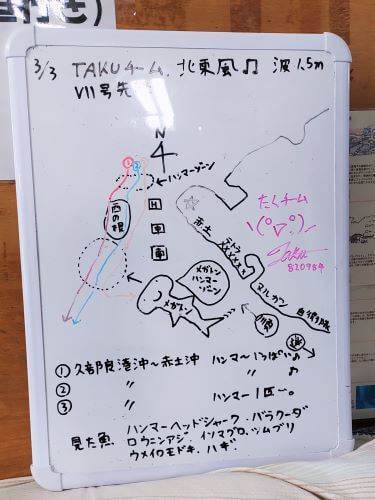 3/3 TAKUチーム. 北東風♫ 波1.5m
VII号先
N
①②
ハンマーゾーン
西の根
赤土
テトラ
××××××
たくチーム
\(°▽°)/
Taku
820984
メガトン
ハンマー
ゾーン
メガトン
ヌルカン
① 久部良湾沖〜赤土沖 ハンマーいっぱい♪
② 〃 〃 ♪
③ 〃 ハンマー1匹〜。
見た魚 ハンマーヘッドシャーク. バラクーダ
ロウニンアジ. イソマグロ. ツムブリ
ウメイロモドキ. ハギ.